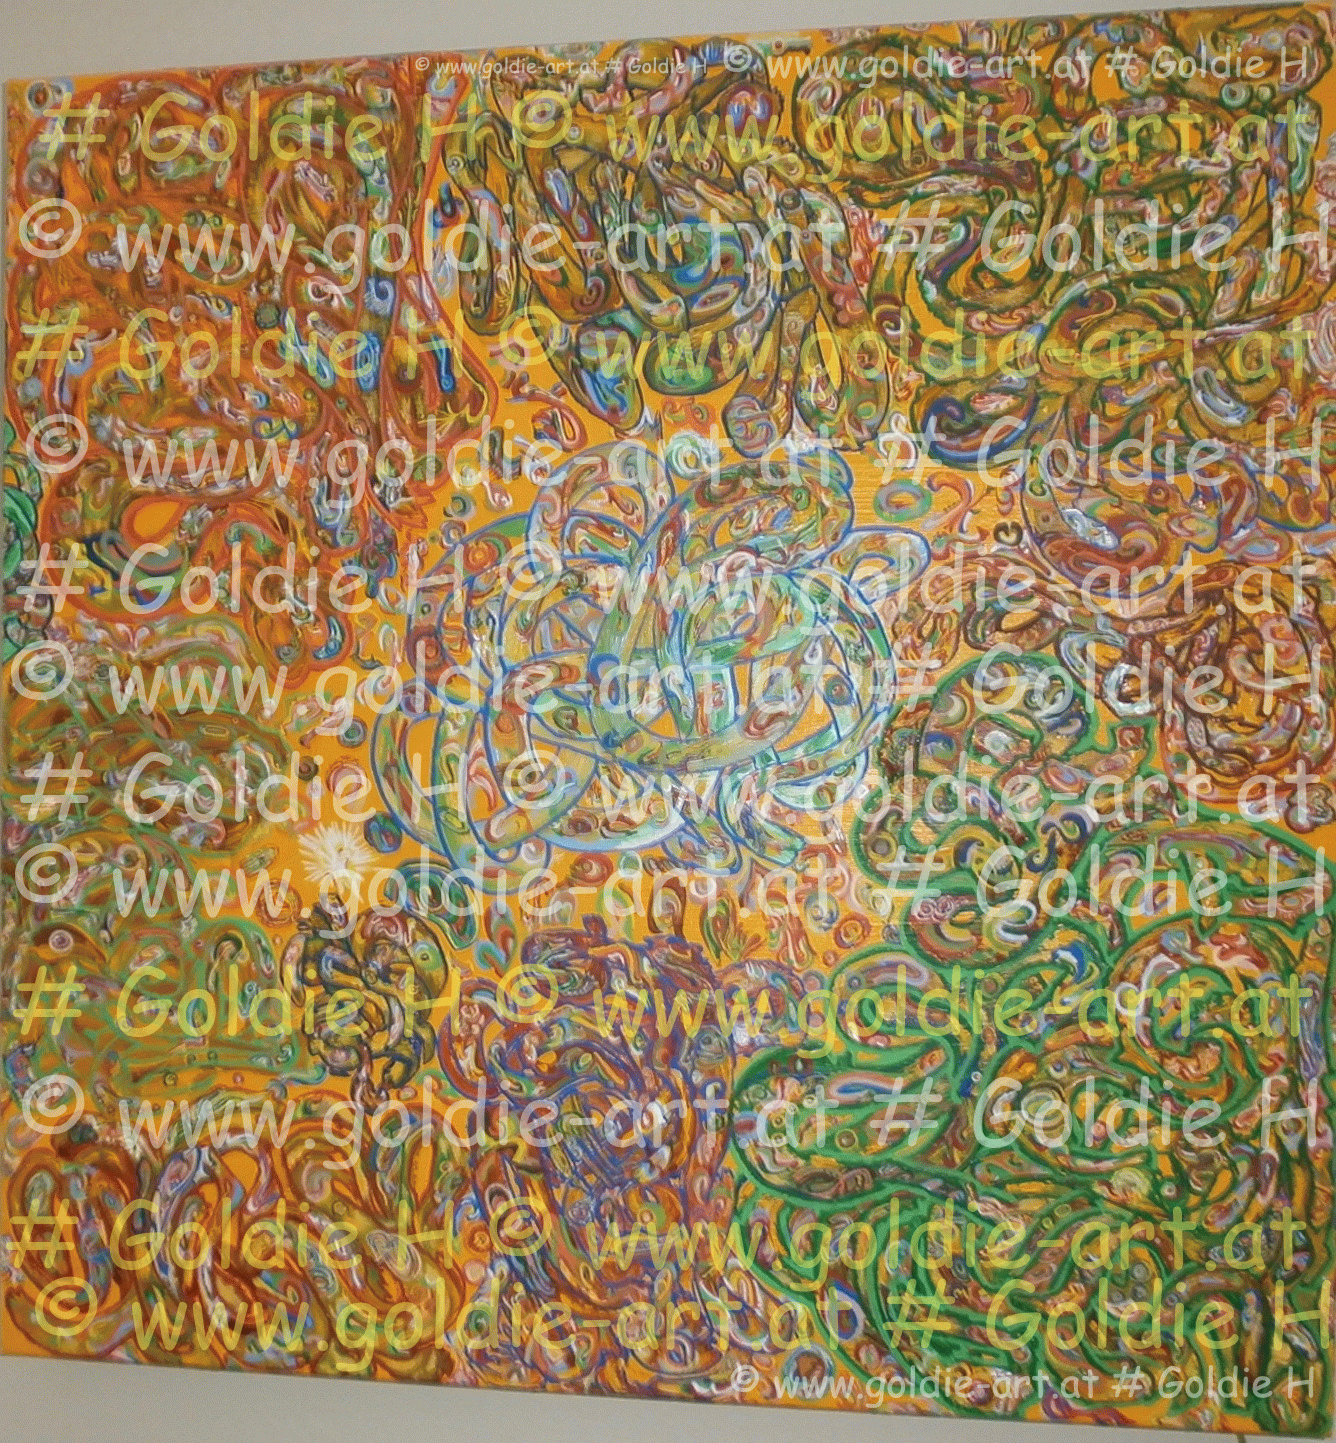 © www.goldie-art.at # Goldie H © www.goldie-art.at # Goldie H
# Goldie H © www.goldie-art.at
© www.goldie-art.at # Goldie H
# Goldie H © www.goldie-art.at
© www.goldie-art.at # Goldie H
# Goldie H © www.goldie-art.at
© www.goldie-art.at # Goldie H
# Goldie H © www.goldie-art.at
© www.goldie-art.at # Goldie H
# Goldie H © www.goldie-art.at
© www.goldie-art.at # Goldie H
# Goldie H © www.goldie-art.at
© www.goldie-art.at # Goldie H
© www.goldie-art.at # Goldie H